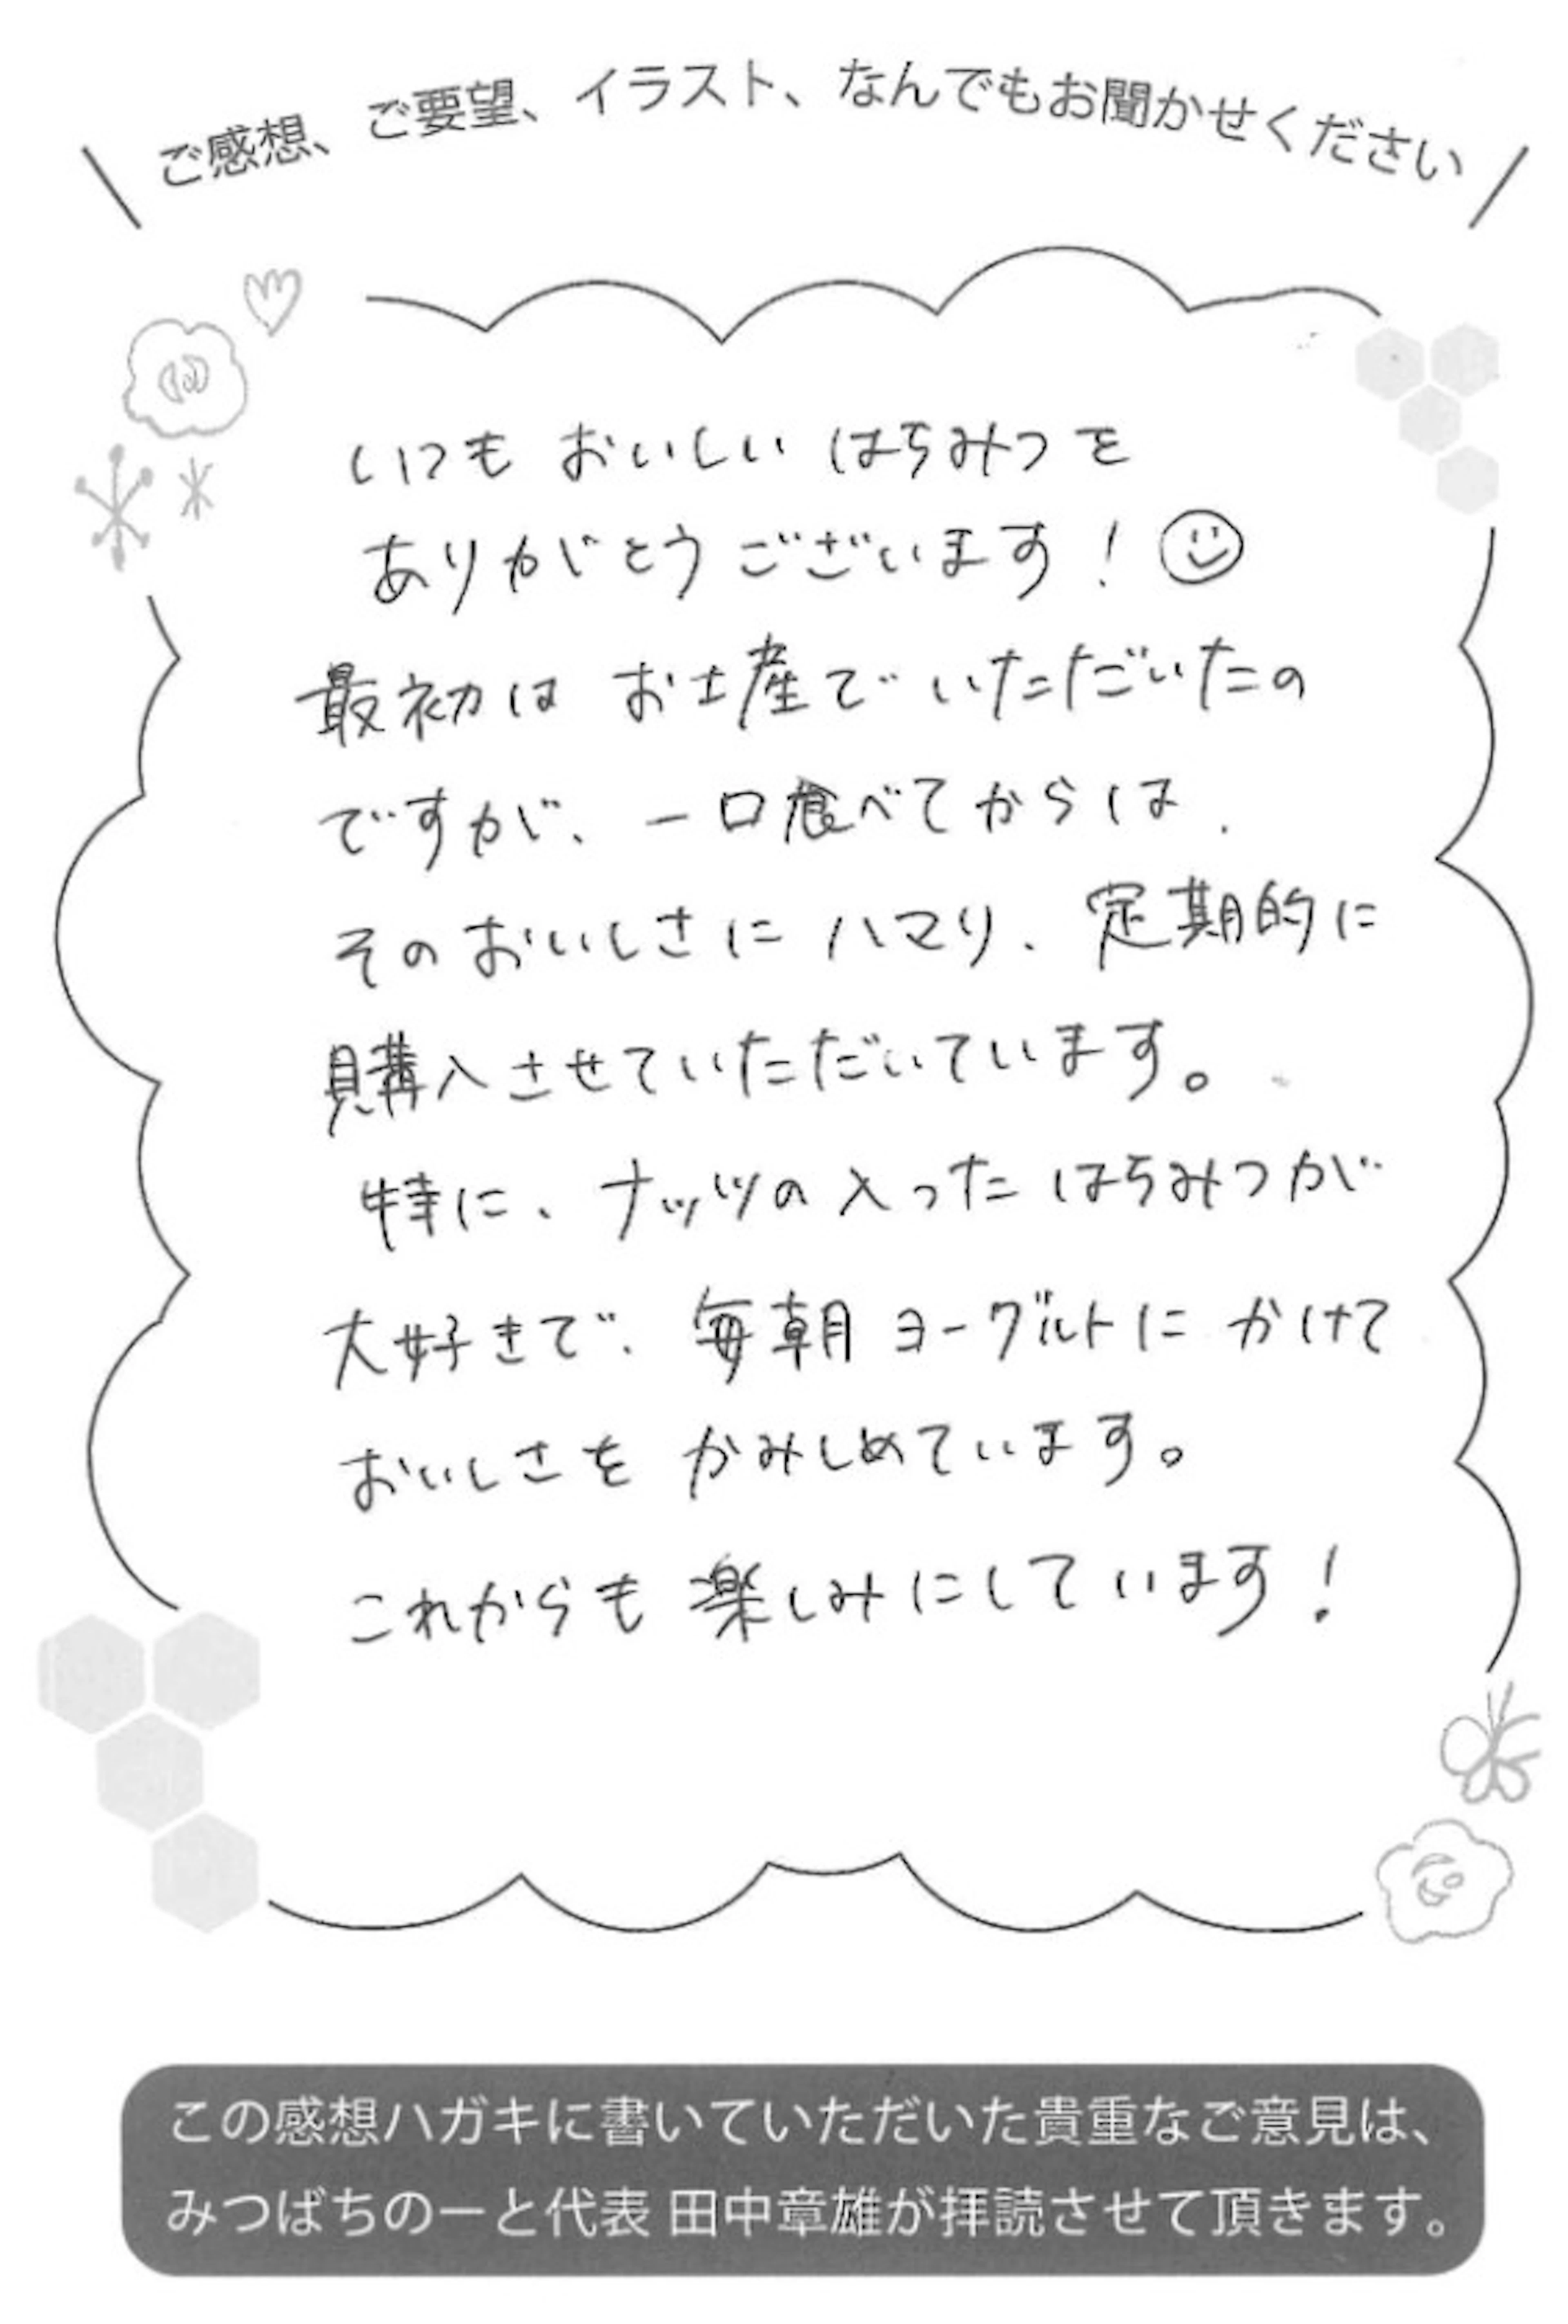 ご感想、ご要望、イラスト、なんでもお聞かせください
いつもおいしいはちみつを
ありがとうございます！
最初はお土産でいただいたの
ですが、一口食べてからは、
そのおいしさにハマり、定期的に
購入させていただいています。
特に、ナッツの入ったはちみつが
大好きで、毎朝ヨーグルトにかけて
おいしさをかみしめています。
これからも楽しみにしています！
この感想ハガキに書いていただいた貴重なご意見は、
みつばちのーと代表 田中章雄が拝読させて頂きます。